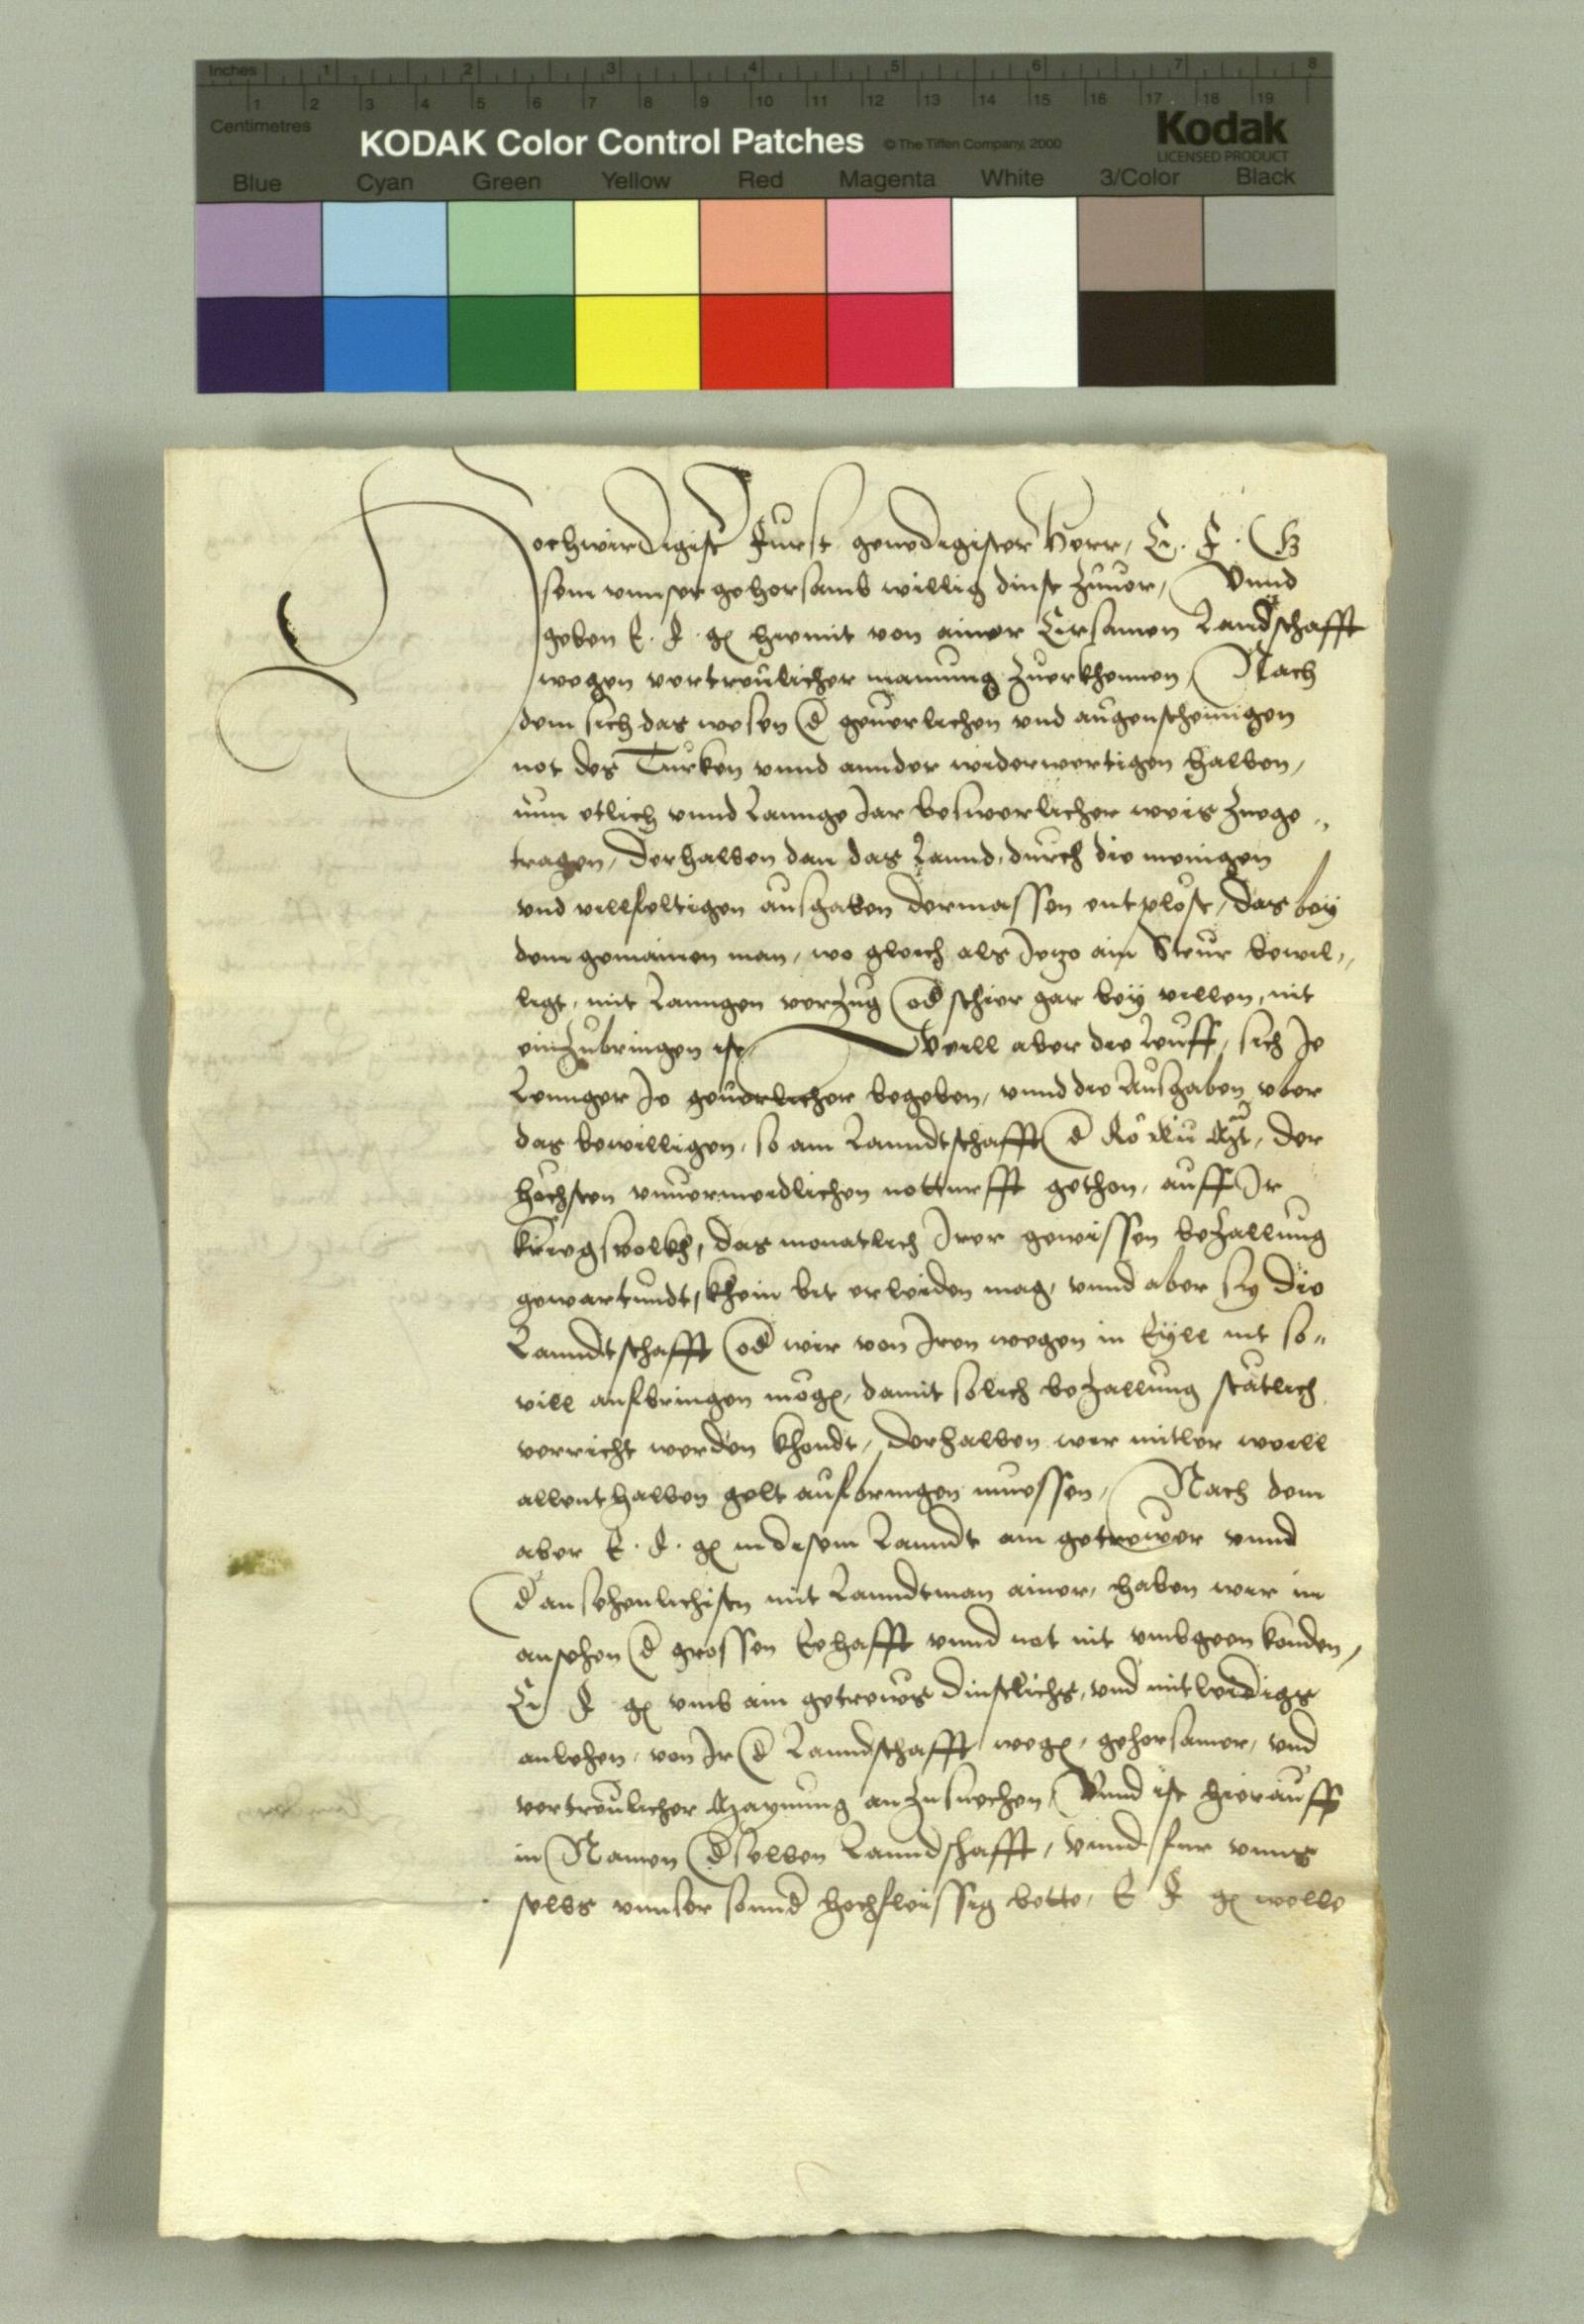 Inches 1 2 3 4 5 6 7 8
1 2 3 4 5 6 7 8 9 10 11 12 13 14 15 16 17 18 19
Centimetres
KODAK Color Control Patches © The Tiffen Company, 2000
Kodak
LICENSED PRODUCT
Blue Cyan Green Yellow Red Magenta White 3/Color Black
Hochwirdigist Furst genedigister Herr, E. F. G
sein vnnser gehorsamb willig dinst zuuor, Vnnd
geben E. F. g hiemit von ainer Ersamen Landschafft
wegen vertreulicher manung zuerkhennen, Nach
dem sich das wesen d geuerlichen vnd augenscheinigen
not des Turken vnnd annder widerwertigen halben,
nun etlich vnnd Lannge Jar beswerlicher weis zuege„
tragen, Derhalben dan das Lannd, durch die menigen
vnd villfeltigen ausgaben dermassen entplöst, das bey
dem gemainen man, wo gleich als Jetzo ain Steur bewil„
ligt, mit Lanngen verzug od schier gar bey villen, nit
einzubringen ist, Weill aber die Leuff, sich Je
Lennger Je geuerlicher begeben, vnnd die Ausgaben vber
das bewilligen, so ain Lanndtschafft d Rö Kü Mt, der
hochsten vnuermeidlichen notturfft gethon, auff Ir
kriegsvolkh, das monatlich Irer gewissen bezallung
gewartundt, khein bit erleiden mag, vnnd aber sy die
Lanndtschafft od wir von Iren wegen in Eyll nit so„
vill aufbringen mög, damit solich bezallung statlich
verricht werden khondt, Derhalben wir mitler weill
allenthalben gelt aufbringen muessen, Nach dem
aber E. F. g in disem Lanndt ain getrewer vnnd
d ansehenlichisten mit Lanndtman ainer, haben wir in
ansehen d grossen Eehafft vnnd not nit vmbgeen konden,
E F g vmb ain getrews dinstlichs, vnd mitleidigs
anlehen, von Ir d Lanndschafft weg, gehorsamer, vnd
vertreulicher Maynung anzusuechen, Vnnd ist hierauff
in Namen dselben Lanndschafft, vnnd fur vnns
selbs vnnser sonnd hochfleissig bitte, E F g welle